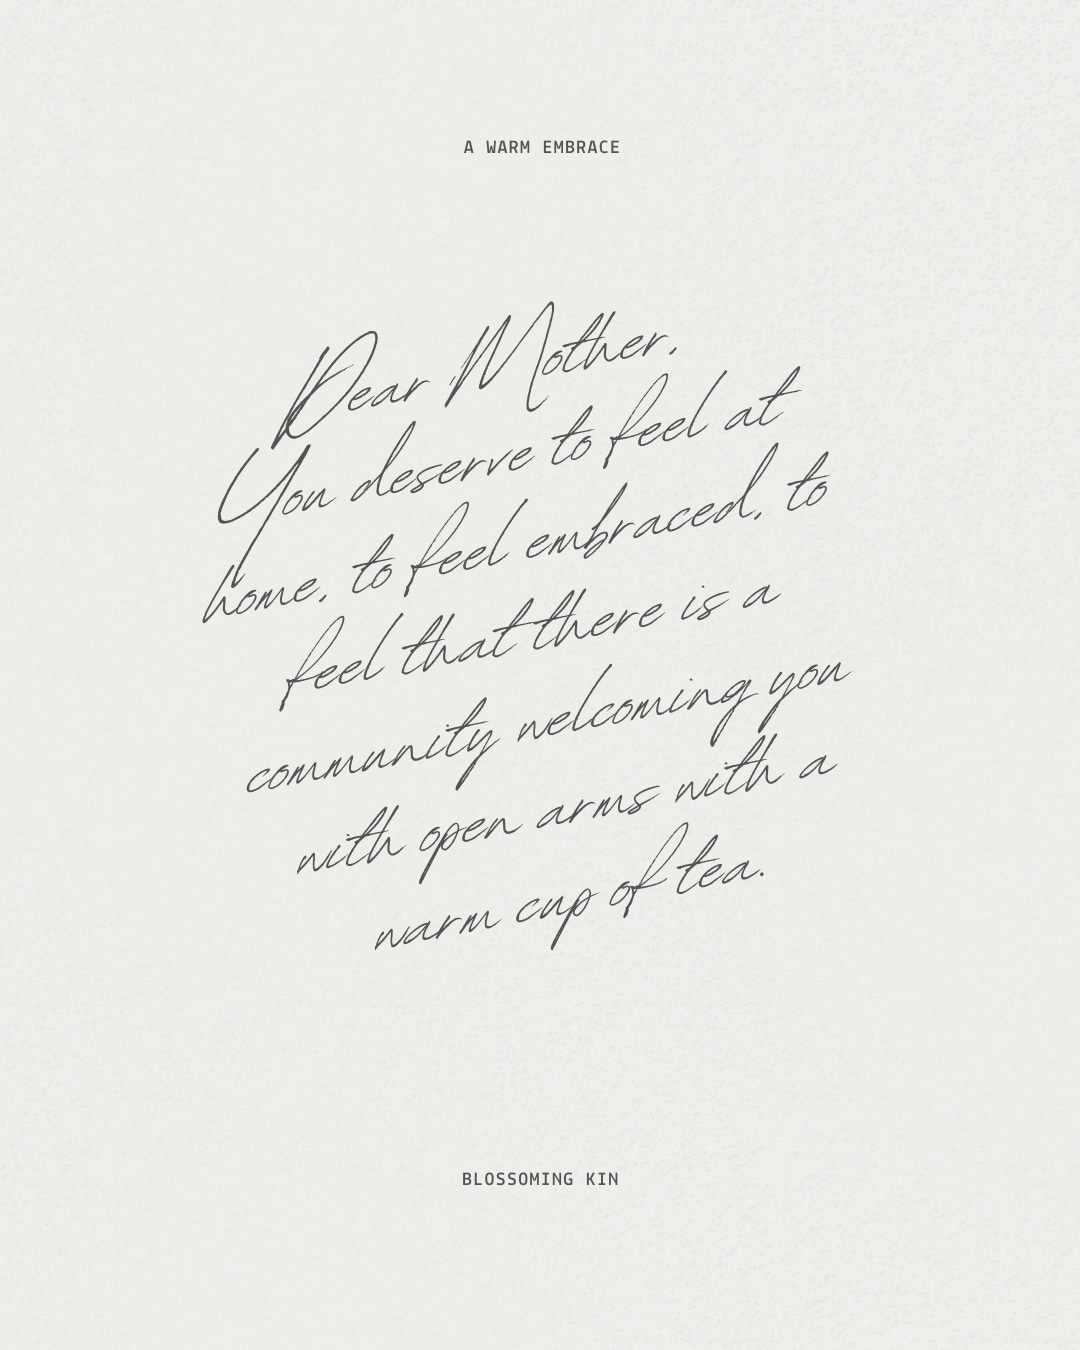 A WARM EMBRACE
Dear Mother,
You deserve to feel at
home, to feel embraced, to
feel that there is a
community welcoming you
with open arms with a
warm cup of tea.
BLOSSOMING KIN